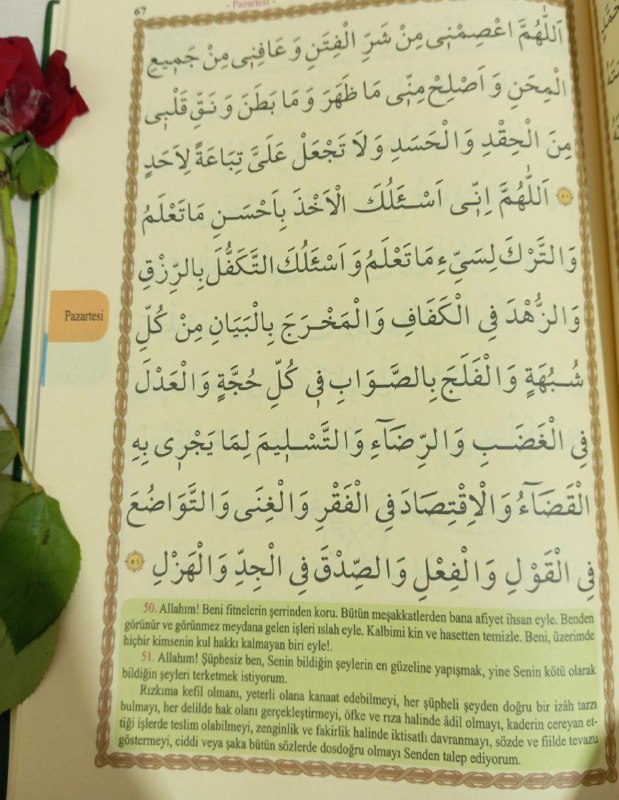 67
- Pazartesi -
اَللّٰهُمَّ اعْصِمْنٖى مِنْ شَرِّ الْفِتَنِ وَعَافِنٖى مِنْ جَمٖيعِ
الْمِحَنِ وَاَصْلِحْ مِنّٖى مَا ظَهَرَ وَمَا بَطَنَ وَنَقِّ قَلْبٖى
مِنَ الْحِقْدِ وَالْحَسَدِ وَلَا تَجْعَلْ عَلَىَّ تِبَاعَةً لِاَحَدٍ
﴿٥٠﴾ اَللّٰهُمَّ اِنّٖى اَسْـَٔلُكَ الْاَخْذَ بِاَحْسَنِ مَاتَعْلَمُ
وَالتَّرْكَ لِسَيِّءِ مَاتَعْلَمُ وَاَسْـَٔلُكَ التَّكَفُّلَ بِالرِّزْقِ
وَالزُّهْدَ فِى الْكَفَافِ وَالْمَخْرَجَ بِالْبَيَانِ مِنْ كُلِّ
شُبُهَةٍ وَالْفَلَجَ بِالصَّوَابِ فٖى كُلِّ حُجَّةٍ وَالْعَدْلَ
فِى الْغَضَبِ وَالرِّضَاۤءِ وَالتَّسْلٖيمَ لِمَا يَجْرٖى بِهِ
الْقَضَاۤءُ وَالْاِقْتِصَادَ فِى الْفَقْرِ وَالْغِنٰى وَالتَّوَاضُعَ
فِى الْقَوْلِ وَالْفِعْلِ وَالصِّدْقَ فِى الْجِدِّ وَالْهَزْلِ ﴿٥١﴾
Pazartesi
50. Allahım! Beni fitnelerin şerrinden koru. Bütün meşakkatlerden bana afiyet ihsan eyle. Benden
görünür ve görünmez meydana gelen işleri ıslah eyle. Kalbimi kin ve hasetten temizle. Beni, üzerimde
hiçbir kimsenin kul hakkı kalmayan biri eyle!.
51. Allahım! Şüphesiz ben, Senin bildiğin şeylerin en güzeline yapışmak, yine Senin kötü olarak
bildiğin şeyleri terketmek istiyorum.
Rızkıma kefil olmanı, yeterli olana kanaat edebilmeyi, her şüpheli şeyden doğru bir izâh tarzı
bulmayı, her delilde hak olanı gerçekleştirmeyi, öfke ve rıza halinde âdil olmayı, kaderin cereyan et-
tiği işlerde teslim olabilmeyi, zenginlik ve fakirlik halinde iktisatlı davranmayı, sözde ve fiilde tevazu
göstermeyi, ciddi veya şaka bütün sözlerde dosdoğru olmayı Senden talep ediyorum.